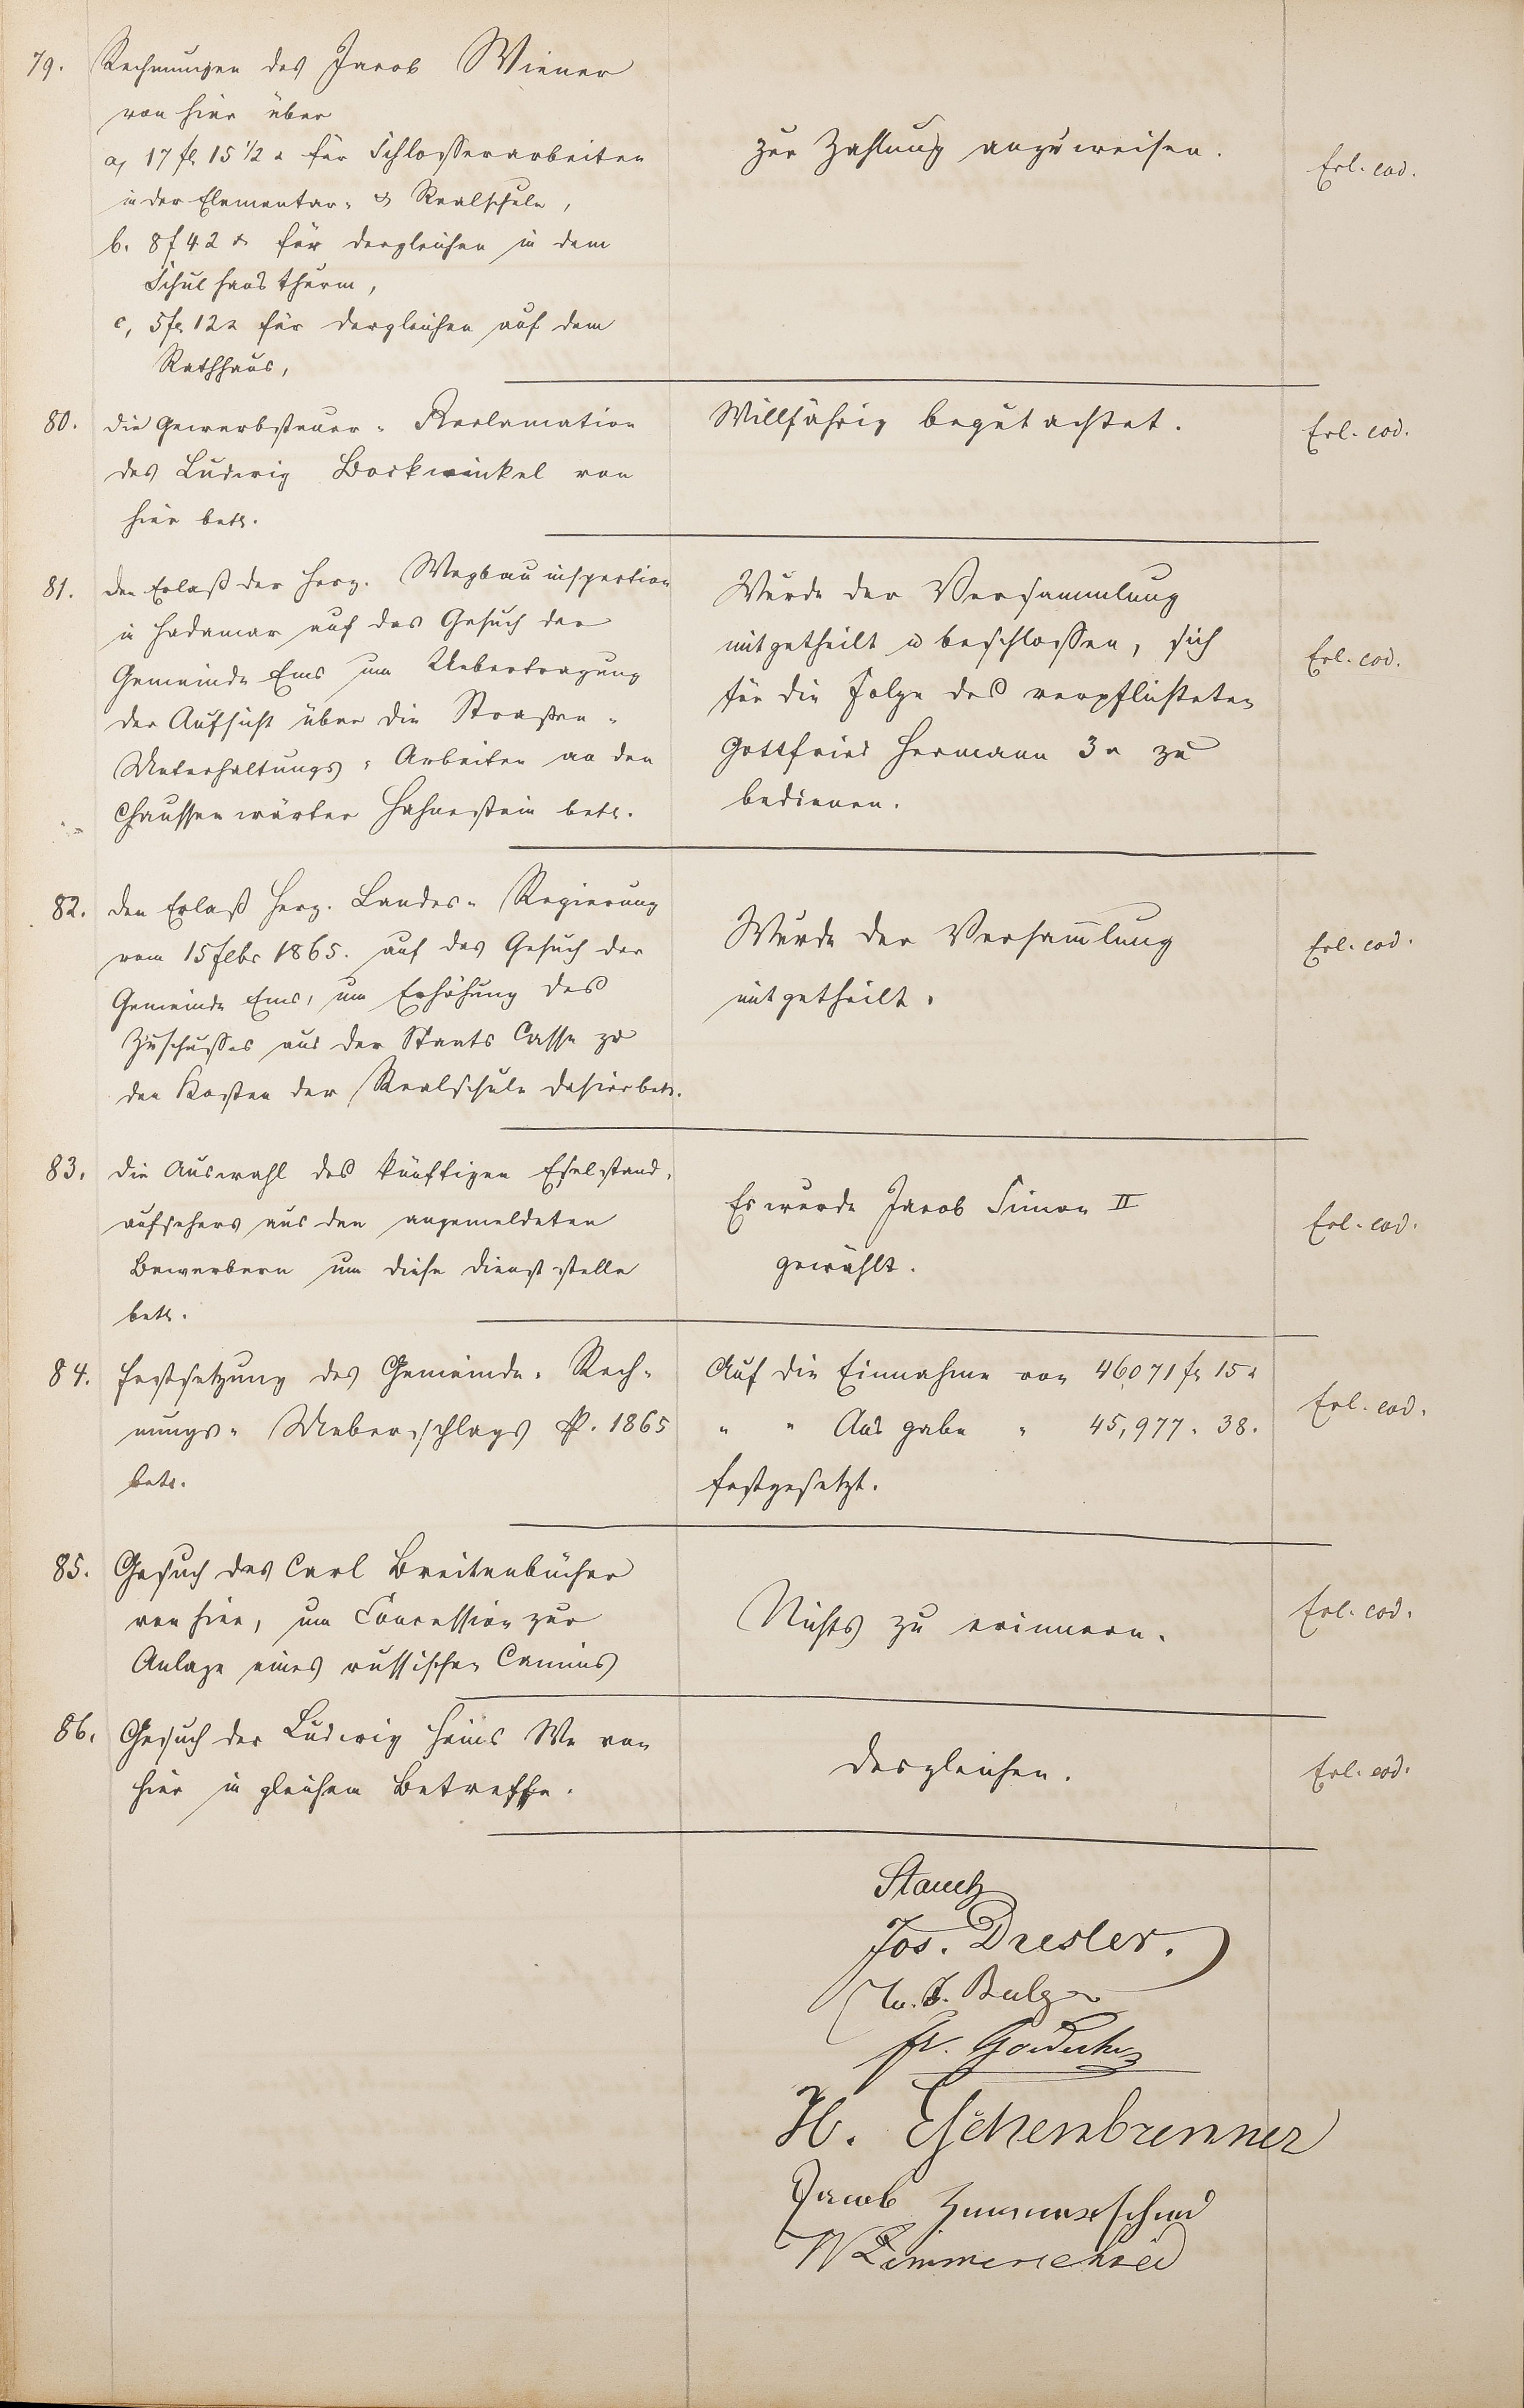 79. Rechnungen des Jacob Wiener
von hier über
a, 17 fl 15 1/2 x für Schlosserarbeiten
in der Elementar- & Realschule,
b. 8 f 42 x für dergleichen in dem
Schulhausthurm,
c, 5 fl 12 x für dergleichen auf dem
Rathhaus,
zur Zahlung anzuweisen.
Erl. eod.
80. die Gewerbsteuer-Reclamation
des Ludwig Bockwinkel von
hier betr.
Willfährig begutachtet.
Erl. eod.
81. den Erlaß der Herz. Wegbauinspection
in Hadamar auf das Gesuch der
Gemeinde Ems um Uebertragung
der Aufsicht über die Straßen-
Unterhaltungs-Arbeiten an den
Chausseewärter Hahnestein betr.
Wurde der Versammlung
mitgetheilt u beschlossen, sich
für die Folge des verpflichteten
Gottfried Hermann 3r zu
bedienen.
Erl. eod.
82. den Erlaß Herz. Landes-Regierung
vom 15 Febr 1865. auf das Gesuch der
Gemeinde Ems, um Erhöhung des
Zuschusses aus der Staats Casse zu
den Kosten der Realschule dahier betr.
Wurde der Versam̅lung
mitgetheilt.
Erl. eod.
83. die Auswahl des künftigen Eselstand-
aufsehers aus den angemeldeten
Bewerbern um diese Dienststelle
betr.
Es wurde Jacob Simon II
gewählt.
Erl. eod.
84. Festsetzung des Gemeinde-Rech-
nungs-Ueberschlags p. 1865
betr.
Auf die Einnahme von 46,071 fl 15 x
" " Ausgabe " 45,977 " 38.
festgesetzt.
Erl. eod.
85. Gesuch des Carl Breitenbücher
von hier, um Concession zur
Anlage eines russischen Camins
Nichts zu erinnern.
Erl. eod.
86. Gesuch der Ludwig Heins We von
hier in gleichem Betreffe.
desgleichen.
Erl. eod.
Jos. Dresler.
Balzer
Fr.
H. Eschenbrenner
Jacob Zimmerschied
W Zimmerschied